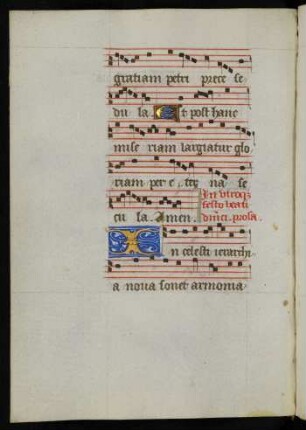 gratiam petri prece se
du la. Et post hanc
mise riam largiatur glo
riam per e. ter na se
cu la. Amen.
In utroque
festo beati
dnici. prosa.
In celesti ierarchi
a noua sonet armonia